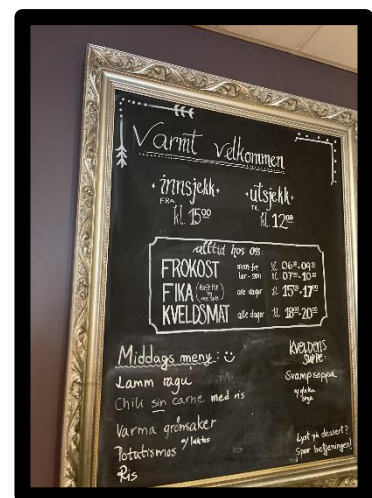 Varmt velkommen
innsjekk
FRA
kl. 15⁰⁰
utsjekk
TIL
kl. 12⁰⁰
alltid hos oss:
FROKOST man-fre kl. 06³⁰-09³⁰
lør-søn kl. 07³⁰-10³⁰
FIKA alle dager kl. 15⁰⁰-17⁰⁰
KVELDSMAT alle dager kl. 18⁰⁰-20⁰⁰
Middags meny:
Lamm ragu
Chili sin carne med ris
Varma grönsaker
Potatismos
Ris
KVELDENS
SUPPE
Svampsoppa
Lyst på dessert?
Spør betjeningen!